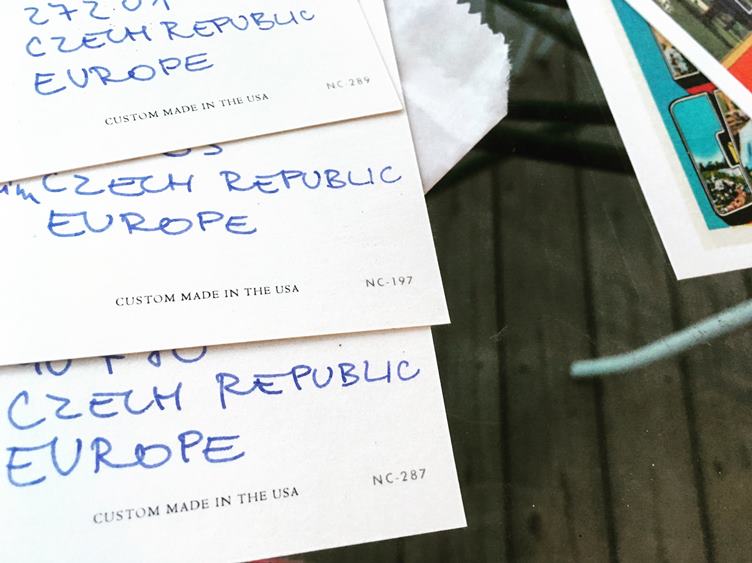 272 01
CZECH REPUBLIC
EUROPE
CUSTOM MADE IN THE USA
NC-289
CZECH REPUBLIC
EUROPE
CUSTOM MADE IN THE USA
NC-197
CZECH REPUBLIC
EUROPE
CUSTOM MADE IN THE USA
NC-287